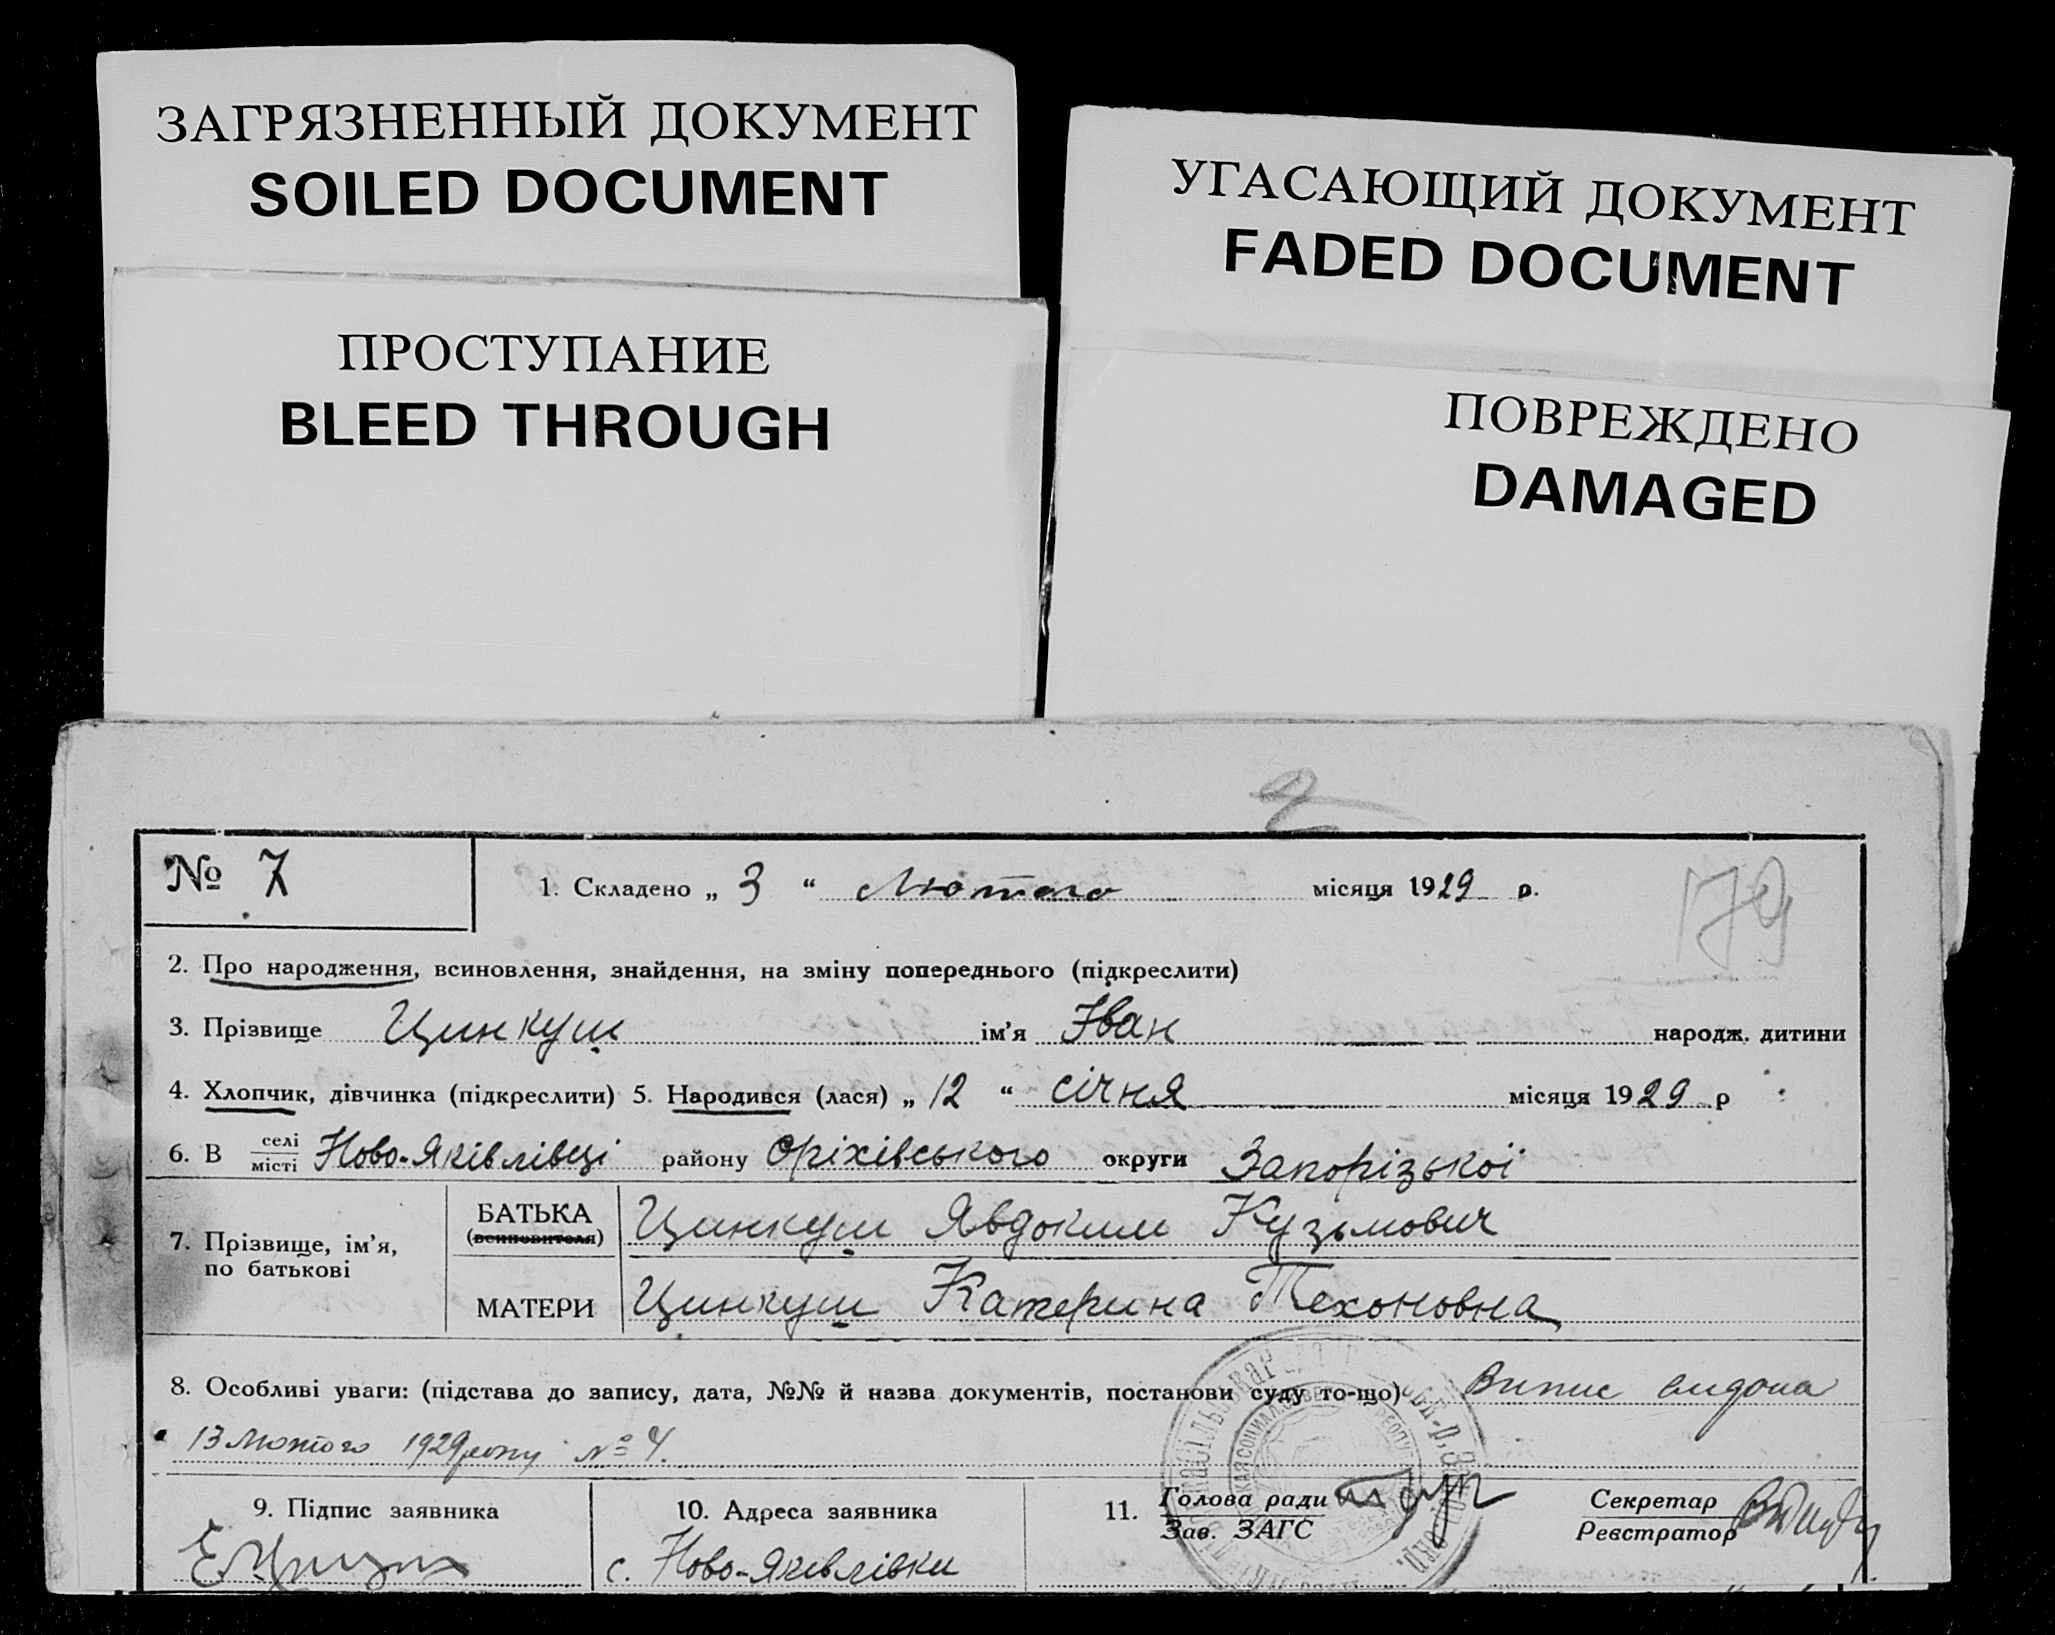 ЗАГРЯЗНЕННЫЙ ДОКУМЕНТ
SOILED DOCUMENT
УГАСАЮЩИЙ ДОКУМЕНТ
FADED DOCUMENT
ПРОСТУПАНИЕ
BLEED THROUGH
ПОВРЕЖДЕНО
DAMAGED
2
№ 7
1. Складено „ 3 “ Лютого місяця 1929 р.
179
2. Про народження, всиновлення, знайдення, на зміну попереднього (підкреслити)
3. Прізвище Цинкуш ім'я Іван народж. дитини
4. Хлопчик, дівчинка (підкреслити) 5. Народився (лася) „ 12 “ січня місяця 1929 р
6. В селі місті Ново-Яківлівці району Оріхівського округи Запорізької
7. Прізвище, ім'я, по батькові
БАТЬКА (всиновителя) Цинкуш Явдоким Кузьмович
МАТЕРИ Цинкуш Катерина Техоновна
8. Особливі уваги: (підстава до запису, дата, №№ й назва документів, постанови суду то-що) Випис видона
13 Лютого 1929 року № 4.
9. Підпис заявника
10. Адреса заявника
с. Ново-Яківлівки
11. Голова ради
Зав. ЗАГС
Секретар
Реєстратор